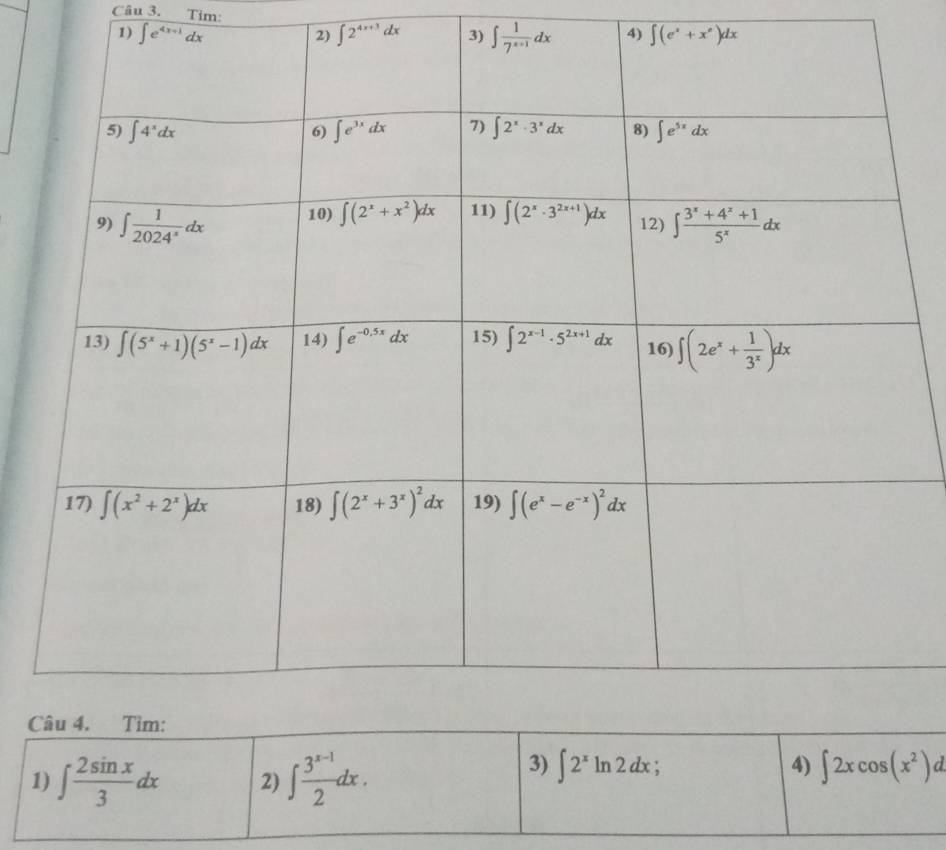 Câu 3. Tìm:
1) ∫e^{4x+1} dx 2) ∫2^{4x+3} dx 3) ∫\frac{1}{7^{x+1}} dx 4) ∫(e^x + x^e)dx
5) ∫4^x dx 6) ∫e^{3x} dx 7) ∫2^x · 3^x dx 8) ∫e^{5x} dx
9) ∫\frac{1}{2024^x} dx 10) ∫(2^x + x^2)dx 11) ∫(2^x · 3^{2x+1})dx 12) ∫\frac{3^x + 4^x + 1}{5^x} dx
13) ∫(5^x + 1)(5^x − 1)dx 14) ∫e^{-0,5x} dx 15) ∫2^{x-1} · 5^{2x+1} dx 16) ∫(2e^x + \frac{1}{3^x})dx
17) ∫(x^2 + 2^x)dx 18) ∫(2^x + 3^x)^2 dx 19) ∫(e^x − e^{-x})^2 dx
Câu 4. Tìm:
1) ∫\frac{2 sin x}{3} dx 2) ∫\frac{3^{x-1}}{2} dx . 3) ∫2^x ln 2 dx ; 4) ∫2x cos(x^2) d